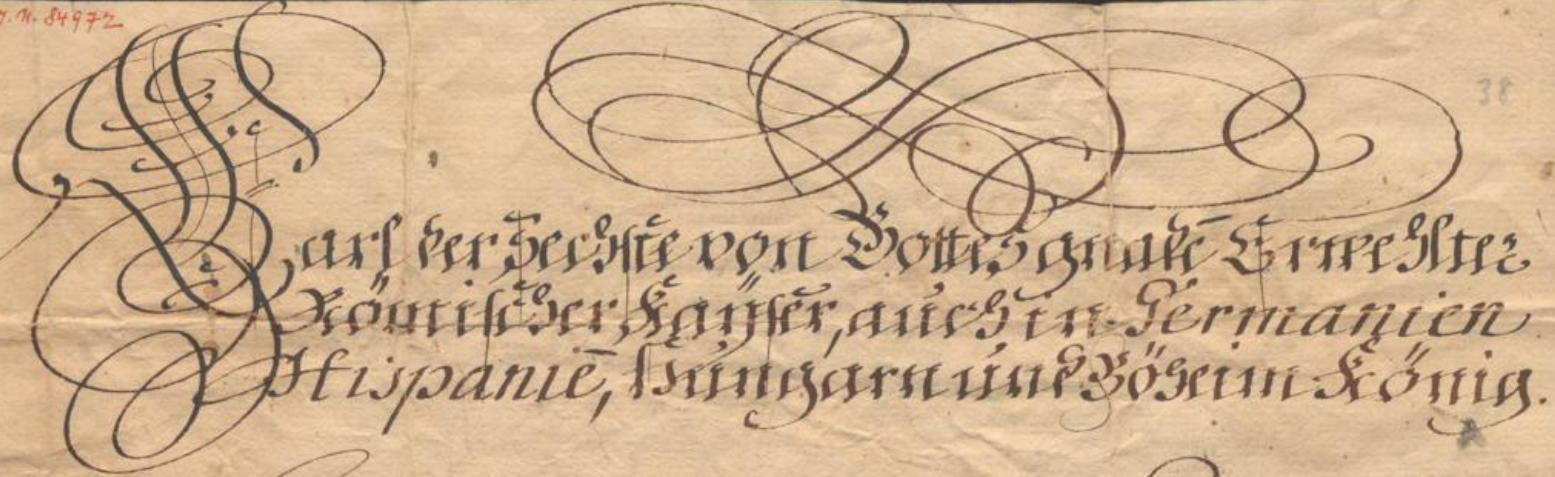 J. N. 84972
38
Carl der Sechste von Gottes gnadē Erwehlter
Römischer Kaÿser, auch in Germanien
Hispaniē, Hungarn und Böheim König.